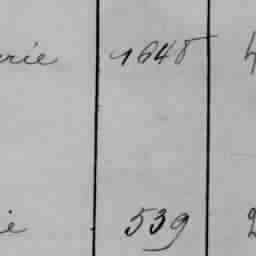 rie 1648 4
ie 539 2